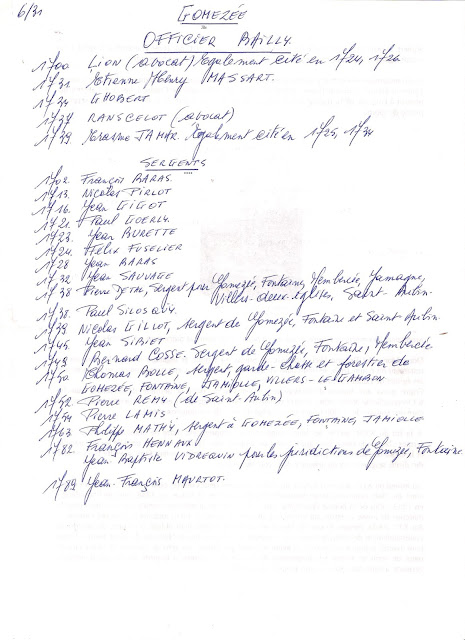 6/31
GOMEZÉE
OFFICIER BAILLY.
1700 LION (avocat) également cité en 1724, 1726
1731 Etienne Henry MASSART.
1734 GHOBERT
RANSCELOT (avocat)
1739 Erasme JAMAR. également cité en 1725, 1734
SERGENTS
1702. François BARAS.
1713. Nicolas PIRLOT
1716. Jean GIGOT
1721. Paul GOERLY.
1723. Jean BURETTE
1724. Félix FUSELIER
1728 Jean BARAS
1732 Jean SAUVAGE
1738 Pierre Sergent pour Gomezée, Fontaine, Hemberée, Jamagne,
Villers-deux-églises, Saint-Aubin.
1738. Paul
1739. Nicolas GILLOT, sergent de Gomezée, Fontaine et Saint Aubin
1745. Jean SIRIET
1749 Bernard COSSE. Sergent de Gomezée, Fontaine, Hemberée
1750. Thomas BOLLE, Sergent, garde-chasse et forestier de
GOMEZÉE, FONTAINE, JAMIOLLE, VILLERS-LE-GAMBON
1752. Pierre REMY (de Saint-Aubin)
Pierre LAMIS.
1763. Philippe MATHY, sergent à GOMEZÉE, FONTAINE, JAMIOLLE
1782. François HENNAUX
Jean Baptiste VIDREQUIN pour les juridictions de Gomezée, Fontaine
1789 Jean-François MAURTOT.